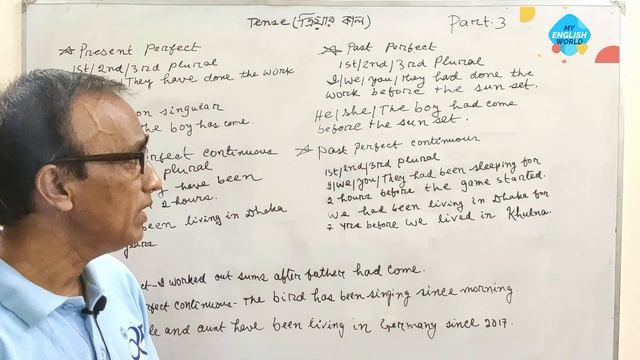 Tense (ক্রিয়ার কাল) Part. 3
MY ENGLISH WORLD
Present Perfect
1st/2nd/3rd plural
/They have done the work
on singular
The boy has come.
rfect continuous
plural
y have been
2 hours.
been living in Dhaka
years.
Past Perfect
1st/2nd/3rd Plural
I/we/you/they had done the
work before the sun set.
He/she/The boy had come
before the sun set.
Past perfect continuous
1st/2nd/3rd plural
I/we/you/They had been sleeping for
2 hours before the game started.
We had been living in Dhaka for
7 yrs before we lived in Khulna.
ct-I worked out sums after father had come.
rfect continuous- The bird has been singing since morning.
le and aunt have been living in Germany since 2017.